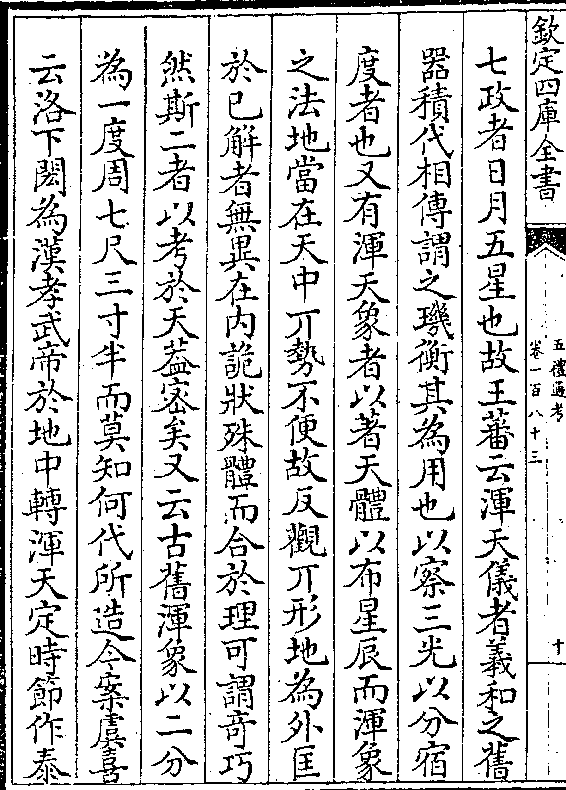 欽定四庫全書
五禮通考
卷一百八十三
十
七政者日月五星也故王蕃云渾天儀者羲和之舊
器積代相傳謂之璣衡其為用也以察三光以分宿
度者也又有渾天象者以著天體以布星辰而渾象
之法地當在天中丌勢不便故反觀丌形地為外匡
於已解者無異在內詭狀殊體而合於理可謂奇巧
然斯二者以考於天葢密矣又云古舊渾象以二分
為一度周七尺三寸半而莫知何代所造今案虞喜
云洛下閎為漢孝武帝於地中轉渾天定時節作泰